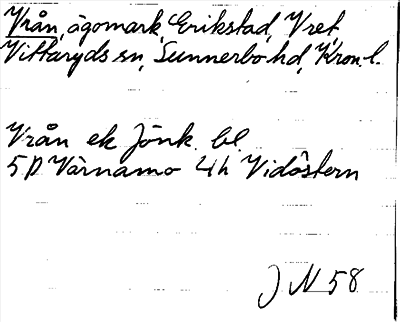 Vrån, ägomark, Erikstad, Vret
Vittaryds sn, Sunnerbo hd, Kron. l.
Vrån ek Jönk. bl.
5D Värnamo 4h Vidöstern
J N 58